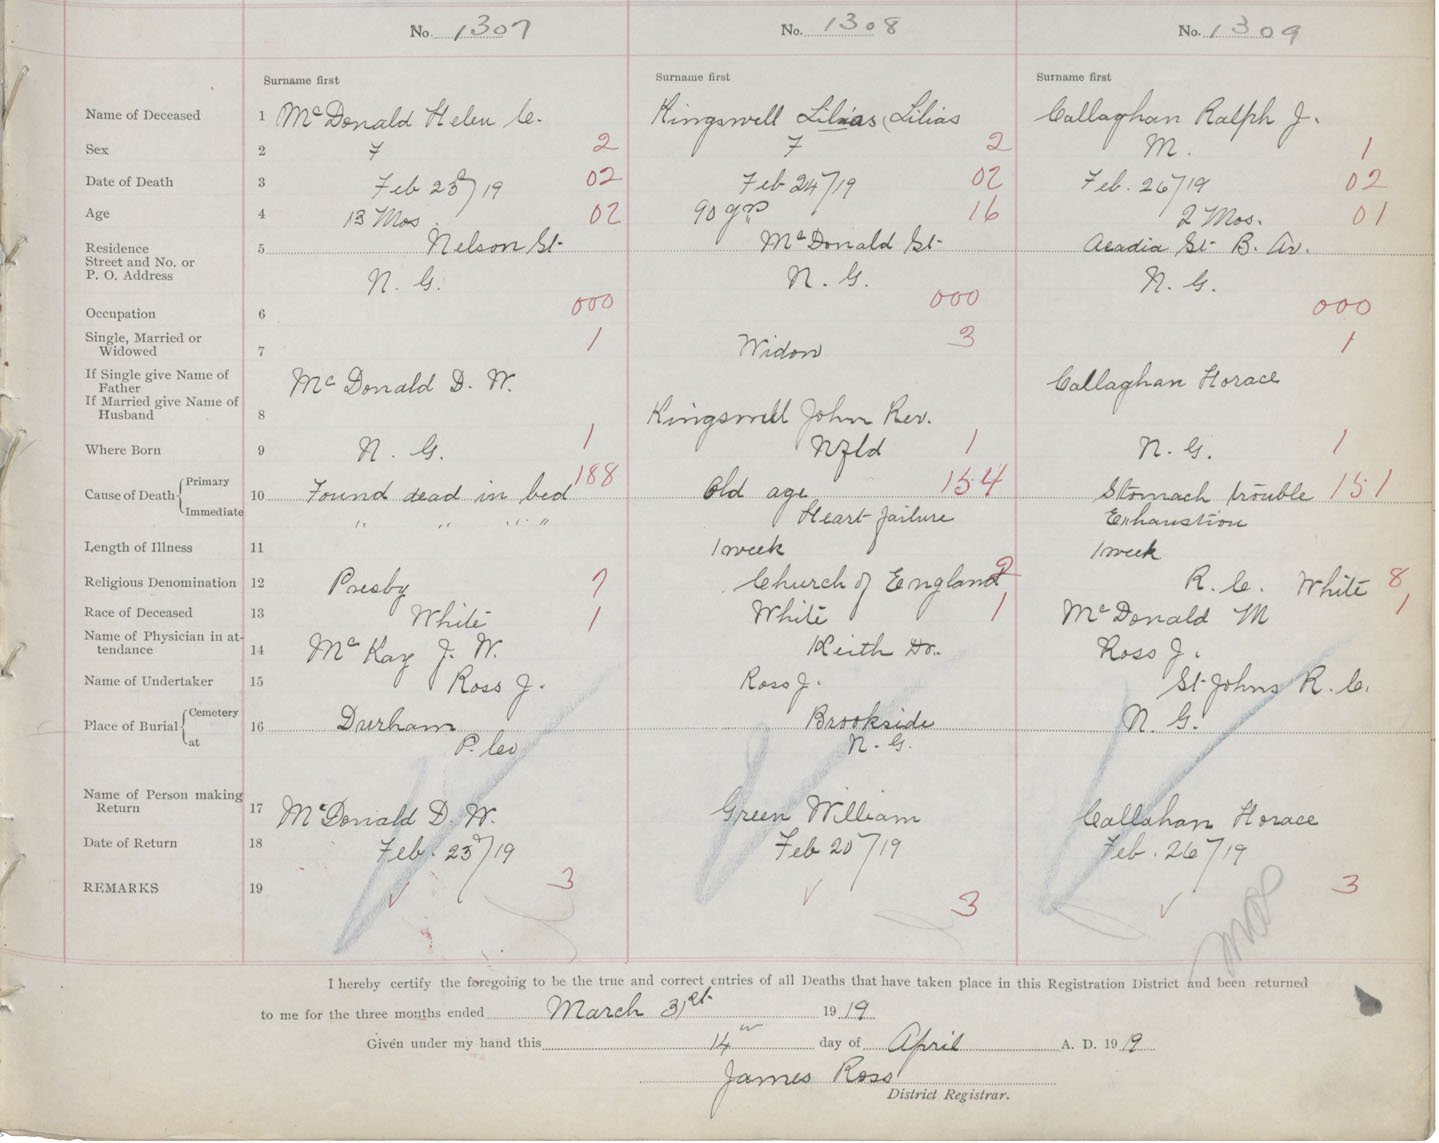 No. 1307 No. 1308 No. 1309
Surname first Surname first Surname first
Name of Deceased 1 McDonald Helen C. Kingswell Lilias (Lilias Callaghan Ralph J.
Sex 2 F 2 F 2 M. 1
Date of Death 3 Feb 23/19 02 Feb 24/19 02 Feb. 26/19 02
Age 4 13 Mos. 02 90 yrs 16 2 Mos. 01
Residence 5 Nelson St McDonald St Acadia St B. Av.
Street and No. or
P. O. Address N. G. N. G. N. G.
Occupation 6 000 000 000
Single, Married or 1 3 1
Widowed 7 Widow
If Single give Name of
Father McDonald D. W. Callaghan Horace
If Married give Name of
Husband 8 Kingswell John Rev.
Where Born 9 N. G. 1 Nfld 1 N. G. 1
Cause of Death Primary 10 Found dead in bed 188 Old age 154 Stomach trouble 151
Immediate " " " " Heart failure Exhaustion
Length of Illness 11 1 week 1 week
Religious Denomination 12 Presby 7 Church of England 2 R. C. White 8
Race of Deceased 13 White 1 White 1 McDonald M 1
Name of Physician in at-
tendance 14 McKay J. W. Keith Dr. Ross J.
Name of Undertaker 15 Ross J. Ross J. St Johns R. C.
Place of Burial Cemetery 16 Durham Brookside N. G.
at P. Co N. G.
Name of Person making
Return 17 McDonald D. W. Green William Callahan Horace
Date of Return 18 Feb. 23/19 Feb 20/19 Feb. 26/19
REMARKS 19 3 3 3
I hereby certify the foregoing to be the true and correct entries of all Deaths that have taken place in this Registration District and been returned
to me for the three months ended March 31st 1919
Given under my hand this 14th day of April A. D. 1919
James Ross
District Registrar.